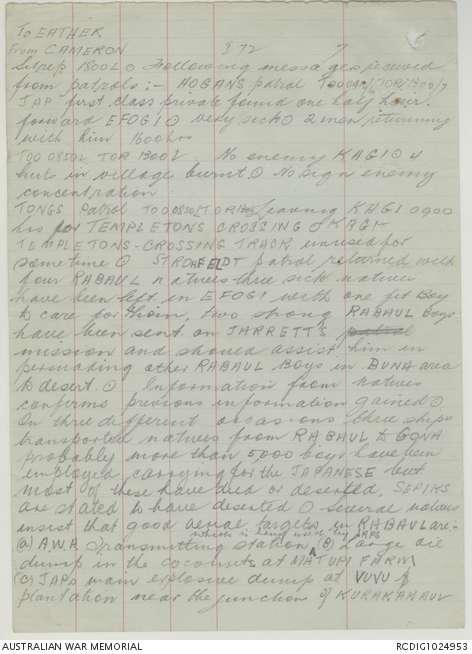 To EATHER
From CAMERON I 72 7
Sitrep 1800L ⊙ Following messages received
from patrols :- HOGANS patrol TOO
JAP first class private found one half hour
forward EFOGI ⊙ very sick ⊙ 2 men returning
with him 1600 hrs
TOO 0850L TOR 1300L. No enemy KAGI ⊙ 4
huts in village burnt ⊙ No sign enemy
concentration
TONGS Patrol TOO 0830/TOR leaving KAGI 0900
hrs for TEMPLETONS CROSSING ⊙ KAGI
TEMPLETONS-CROSSING TRACK unused for
sometime ⊙ STROHFELDT patrol returned with
four RABAUL natives three sick natives
have been left in EFOGI with one fit Boy
to care for them, two strong RABAUL Boys
have been sent on JARRETT'S
mission and should assist him in
persuading other RABAUL Boys in BUNA area
to desert ⊙ Information from natives
confirms previous information gained ⊙
On three different occasions three ships
transported natives from RABAUL to GONA
probably more than 5000 boys have been
employed carrying for the JAPANESE but
most of these have died or deserted, SEPIKS
are stated to have deserted ⊙ Several natives
insist that good aerial targets in RABAUL are:-
(a) A.W.A. Transmitting station which is being used by JAPS (B) Large oil
dump in the coconuts at MATUPI FARM
(C) JAPs main explosive dump at VUVU
plantation near the junction of KURAKAHAUL
AUSTRALIAN WAR MEMORIAL RCDIG1024953